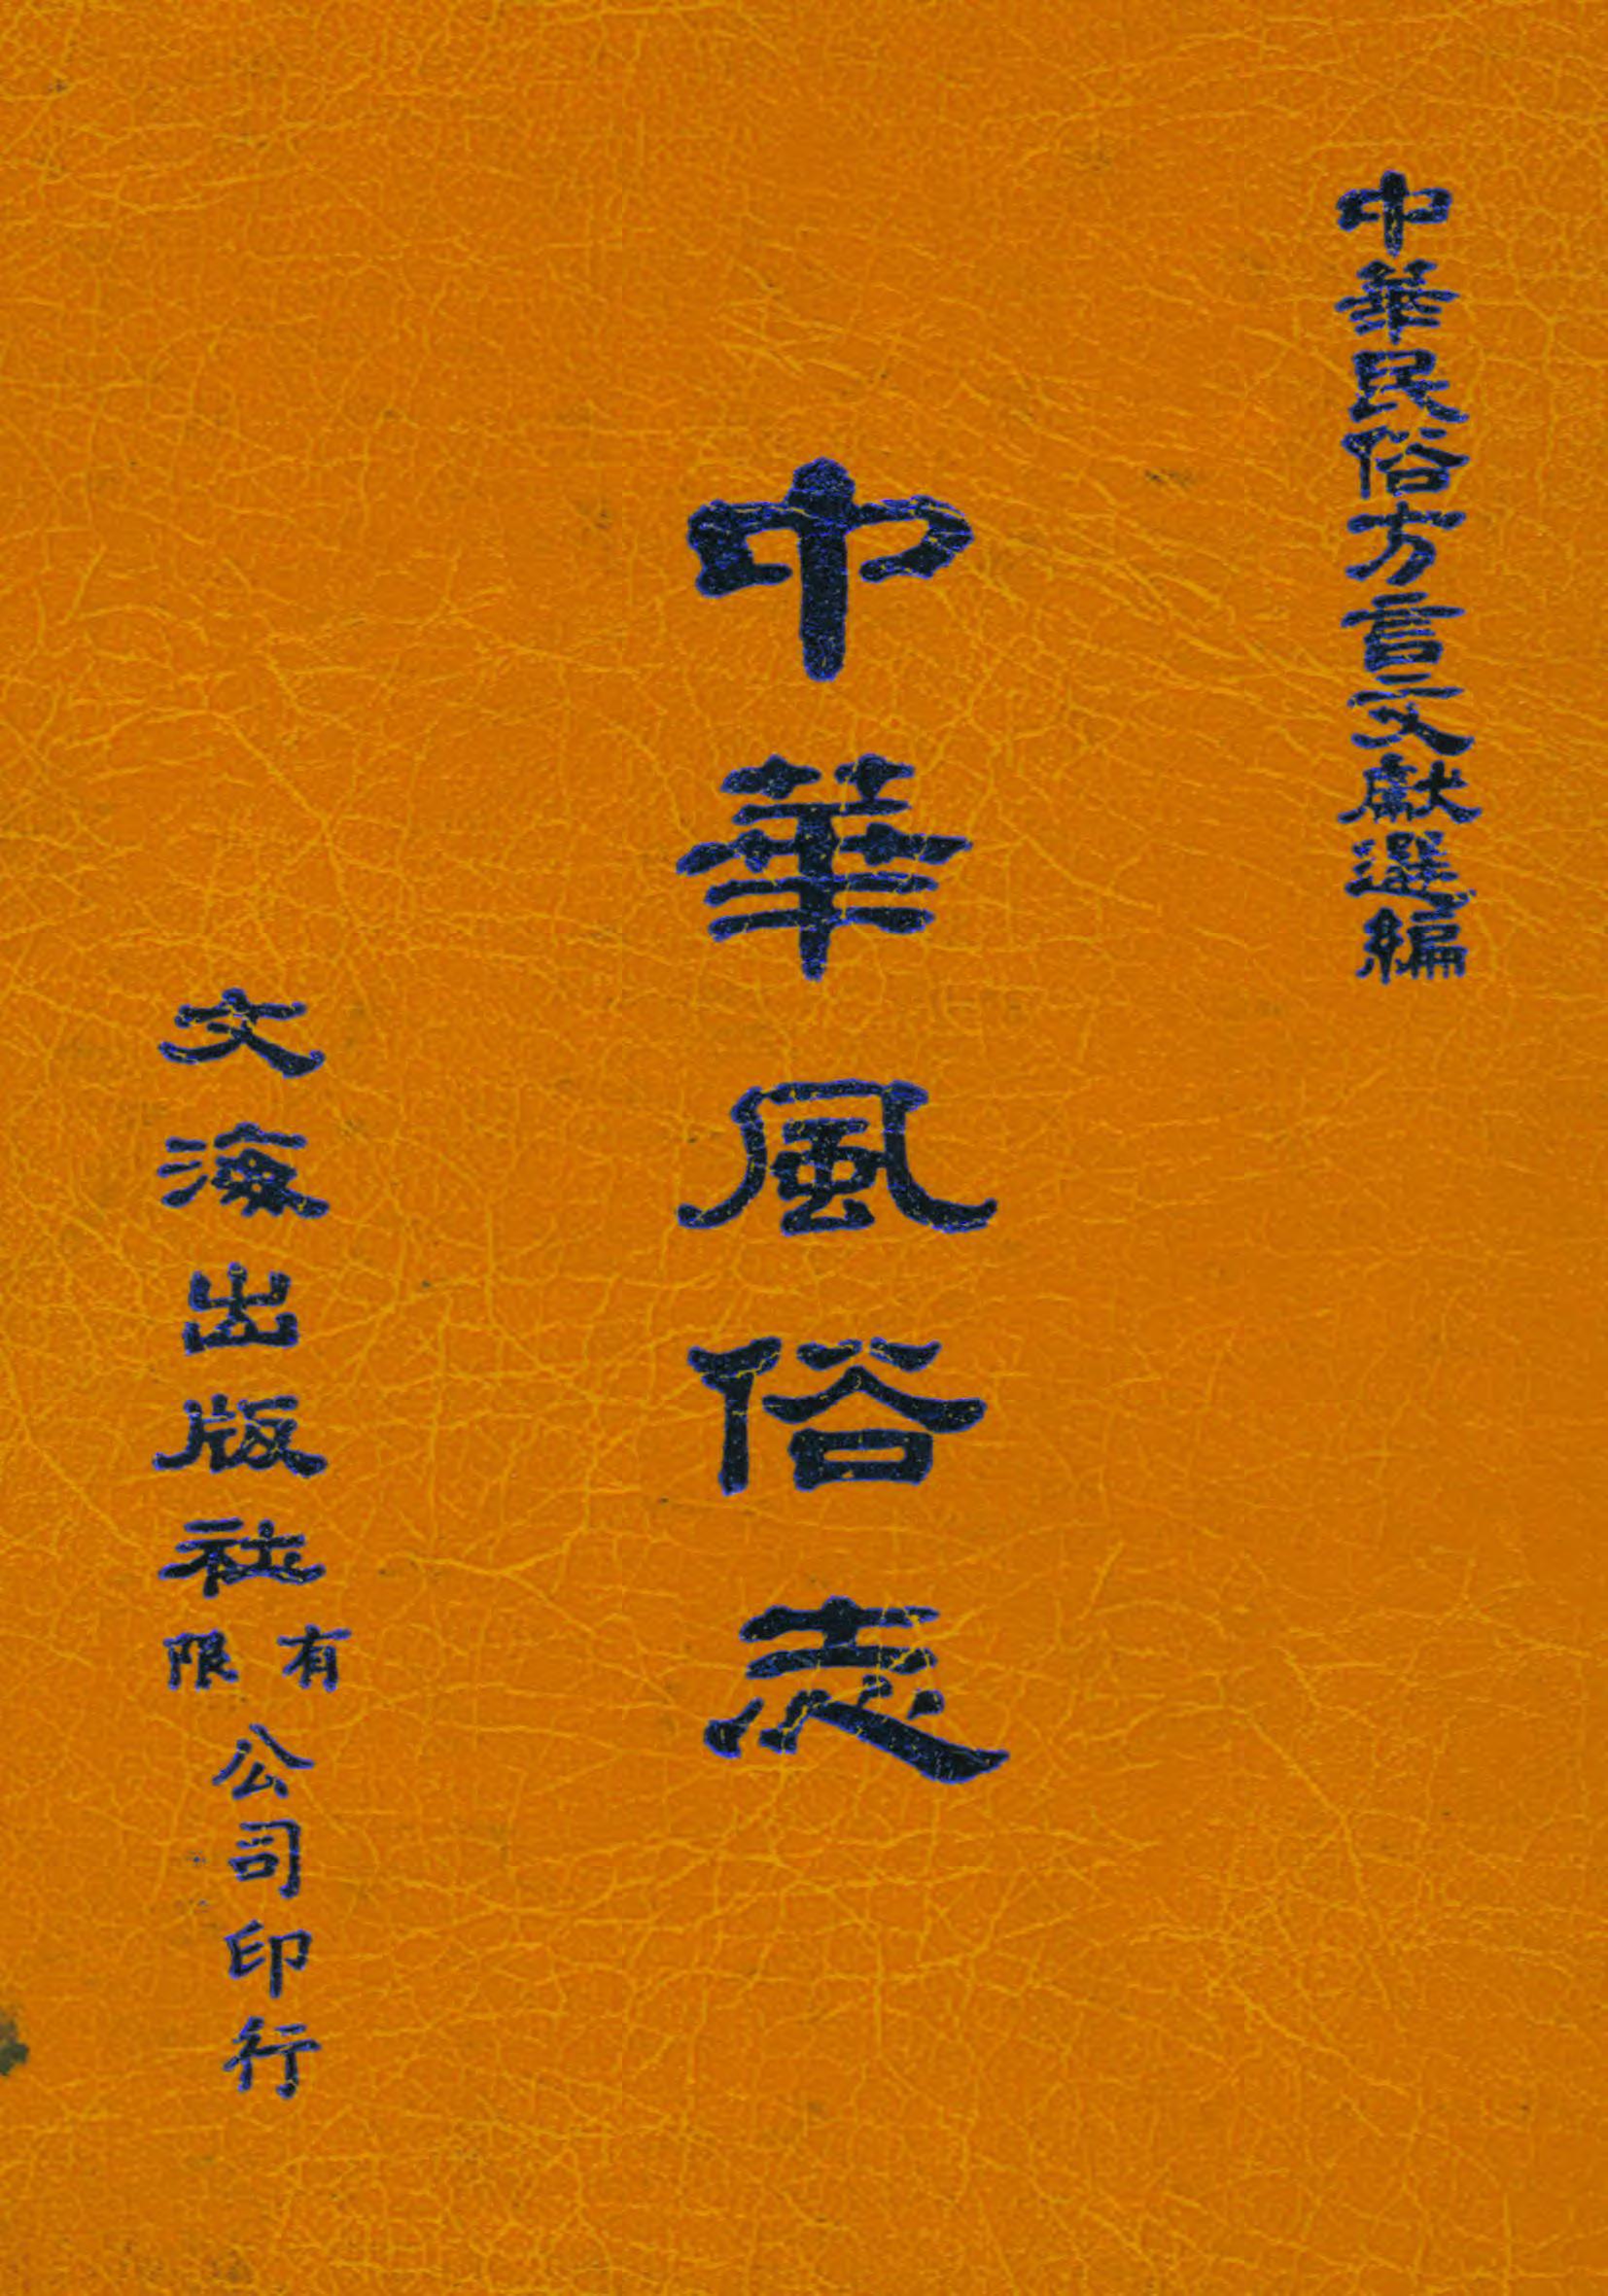 中華民俗方言文獻選編
中華風俗志
文海出版社有限公司印行